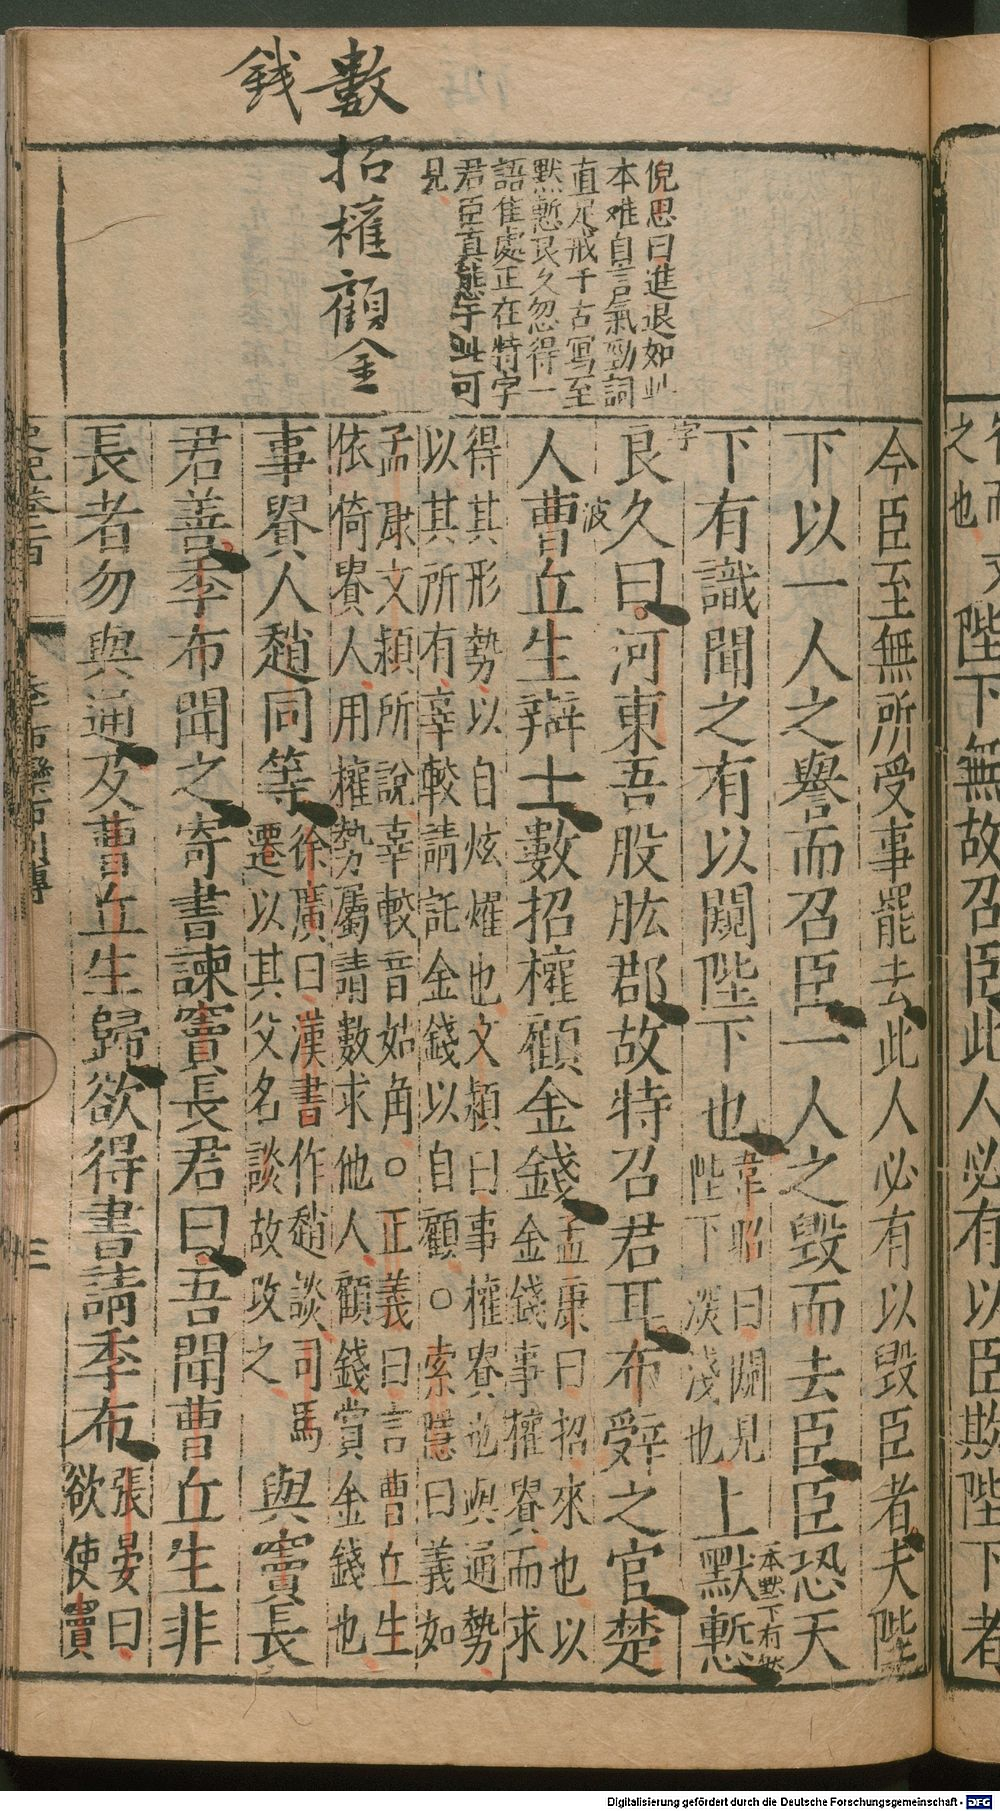 數招權顧金
錢
倪思曰進退如此
本难自言氣勁詞
直足戒千古寫至
默慙良久忽得一
語隹處正在特字
君臣真態于此可
見
今臣至無所受事罷去此人必有以毀臣者夫陛
下以一人之譽而召臣一人之毀而去臣臣恐天
下有識聞之有以闚陛下也
韋昭曰闚見
陛下淺深也
上默慙
一本默下有然
字
良久曰河東吾股肱郡故特召君耳布辭之官楚
人曹丘生辯士數招權顧金錢
波
孟康曰招來也以
金錢事權貴而求
得其形勢以自炫燿也文穎曰事權貴也與通勢
以其所有辜較請託金錢以自顧○索隱曰義如
孟康文穎所說辜較音姑角○正義曰言曹丘生
依倚貴人用權勢屬請數求他人顧錢賞金錢也
事貴人趙同等
徐廣曰漢書作趙談司馬
遷以其父名談故改之
與竇長
君善季布聞之寄書諫竇長君曰吾聞曹丘生非
長者勿與通及曹丘生歸欲得書請季布
張晏曰
欲使竇
史記卷一百
季布欒布列傳
三
之也
陛下無故召臣此人必有以臣欺陛下者
Digitalisierung gefördert durch die Deutsche Forschungsgemeinschaft - DFG